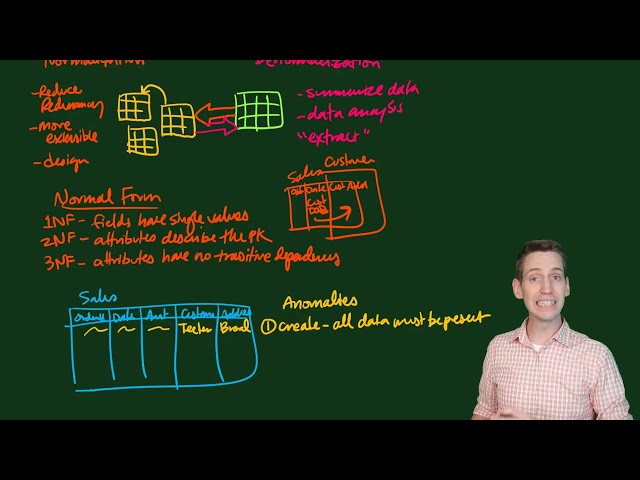 Normalization
Denormalization
- Reduce
Redundancy
- more
extensible
- design
- summarize data
- data analysis
"extract"
Sales Customer
Date Cust
Cust
Normal Form
1NF - fields have single values
2NF - attributes describe the PK
3NF - attributes have no transitive dependencies
Sales
Date Amt Customer Address
Teeter Broad
Anomalies
① Create - all data must be present